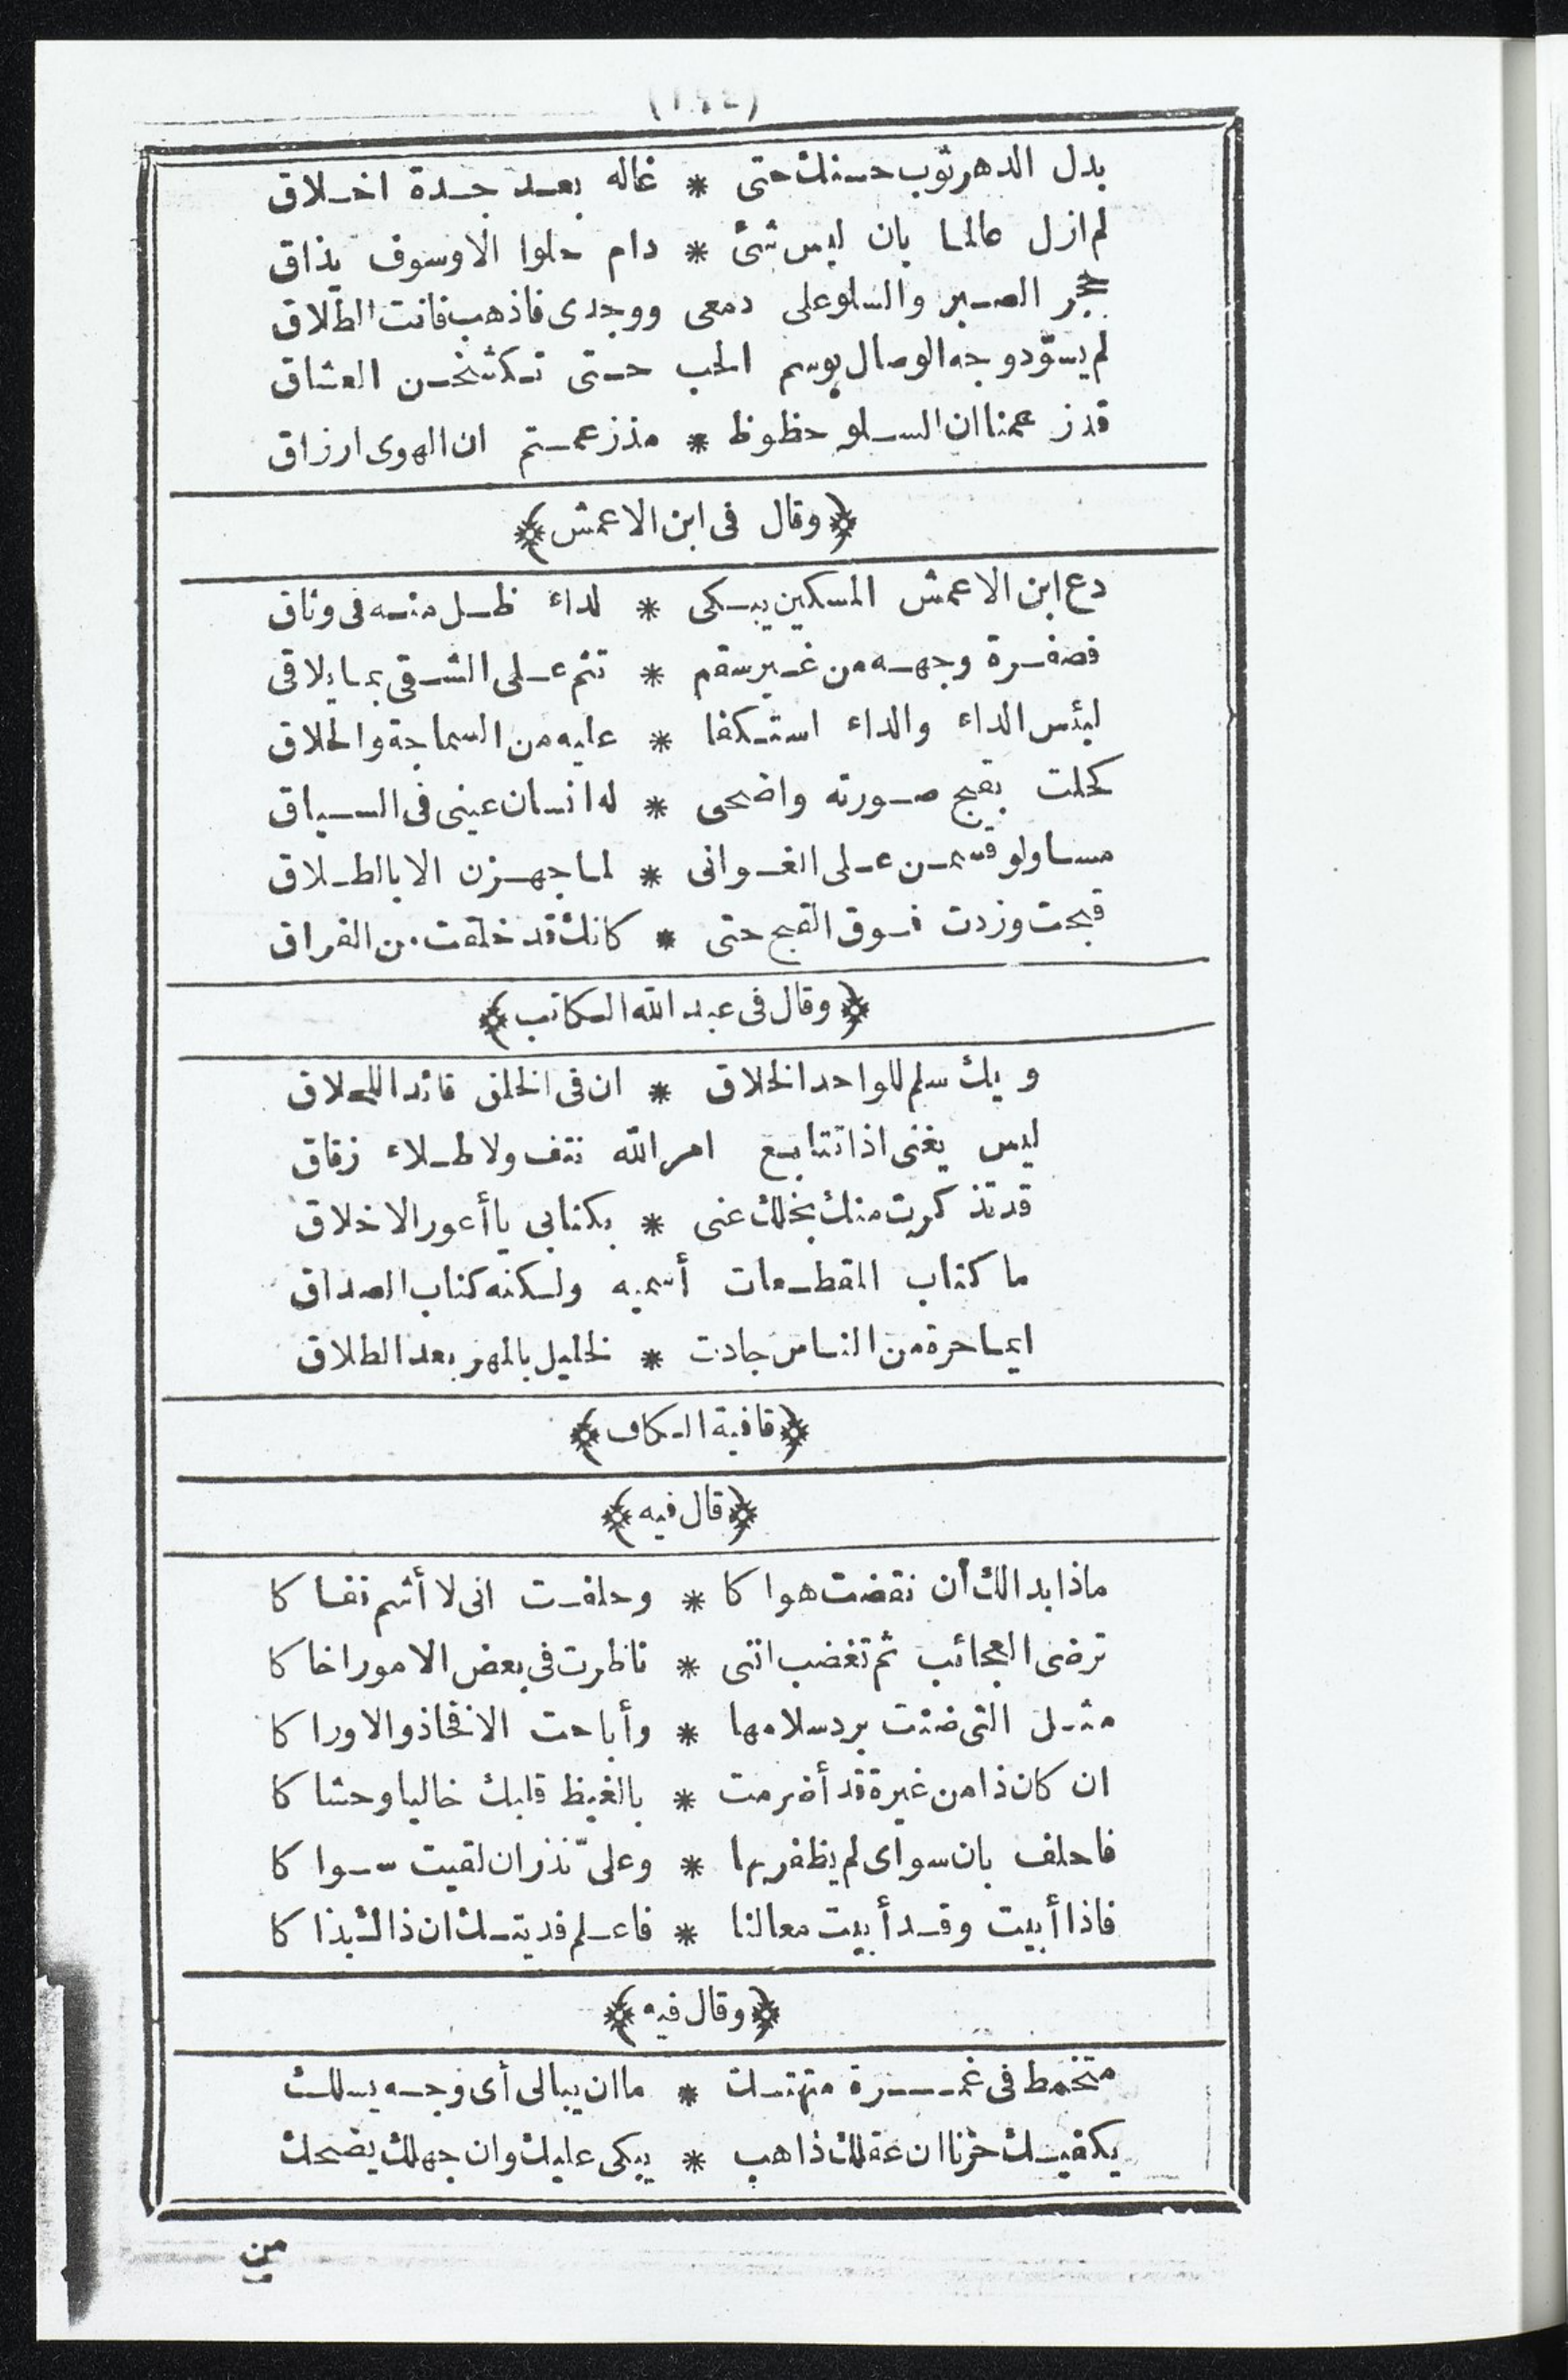 بدل الدهر ثوب حسنك حتى * غاله بعد جدة اخلاق
لم ازل عالما بان ليس شئ * دام حلوا الا وسوف يذاق
حجر الصبر والسلو على دمعى ووجدى فاذهب فانت الطلاق
لم يسوّد وجه الوصال بوسم الحب حتى تكشخن العشاق
قد زعمنا ان السلو حظوظ * مذ زعمتم ان الهوى ارزاق
﴿وقال فى ابن الاعمش﴾
دع ابن الاعمش المسكين يبكى * لداء ظل منه فى وثاق
فصفرة وجهه من غير سقم * تنم على الشقى بما يلاقى
لبئس الداء والداء استكفا * عليه من السماجة والحلاق
كحلت بقبح صورته واضحى * له انسان عينى فى السياق
مساو لو قسمن على الغوانى * لما جهزن الا بالطلاق
قبحت وزدت فوق القبح حتى * كانك قد خلقت من الفراق
﴿وقال فى عبد الله الكاتب﴾
ويك سلم للواحد الخلاق * ان فى الخلق قائد اللحلاق
ليس يغنى اذا تتابع امر الله نتف ولا طلاء زقاق
قد تذكرت منك بخلك عنى * بكتابى يا أعور الاخلاق
ما كتاب المقطعات أسميه ولكنه كتاب الصداق
ايما حرة من الناس جادت * لخليل بالمهر بعد الطلاق
﴿قافية الكاف﴾
﴿قال فيه﴾
ماذا بدا لك أن نقضت هواكا * وحلفت انى لا أشم نفساكا
ترضى العجائب ثم تغضب اننى * ناظرت فى بعض الامور اخاكا
مثل التى ضنت برد سلامها * وأباحت الافخاذ والاوراكا
ان كان ذا من غيرة قد أضرمت * بالغيظ قلبك خاليا وحشاكا
فاحلف بان سواى لم يظفر بها * وعلىّ نذر ان لقيت سواكا
فاذا أبيت وقد أبيت معالنا * فاعلم فديتك ان ذاك بذاكا
﴿وقال فيه﴾
متخمط فى غمرة متهتك * ما ان يبالى أى وجه يسلك
يكفيك حزنا ان عقلك ذاهب * يبكى عليك وان جهلك يضحك
من